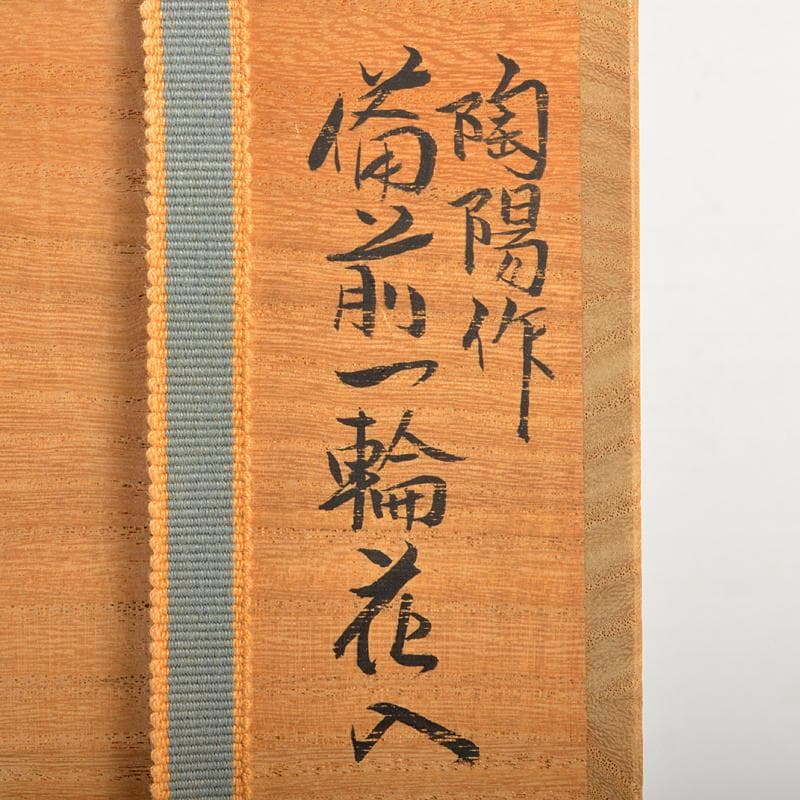 陶陽作
備前一輪花入